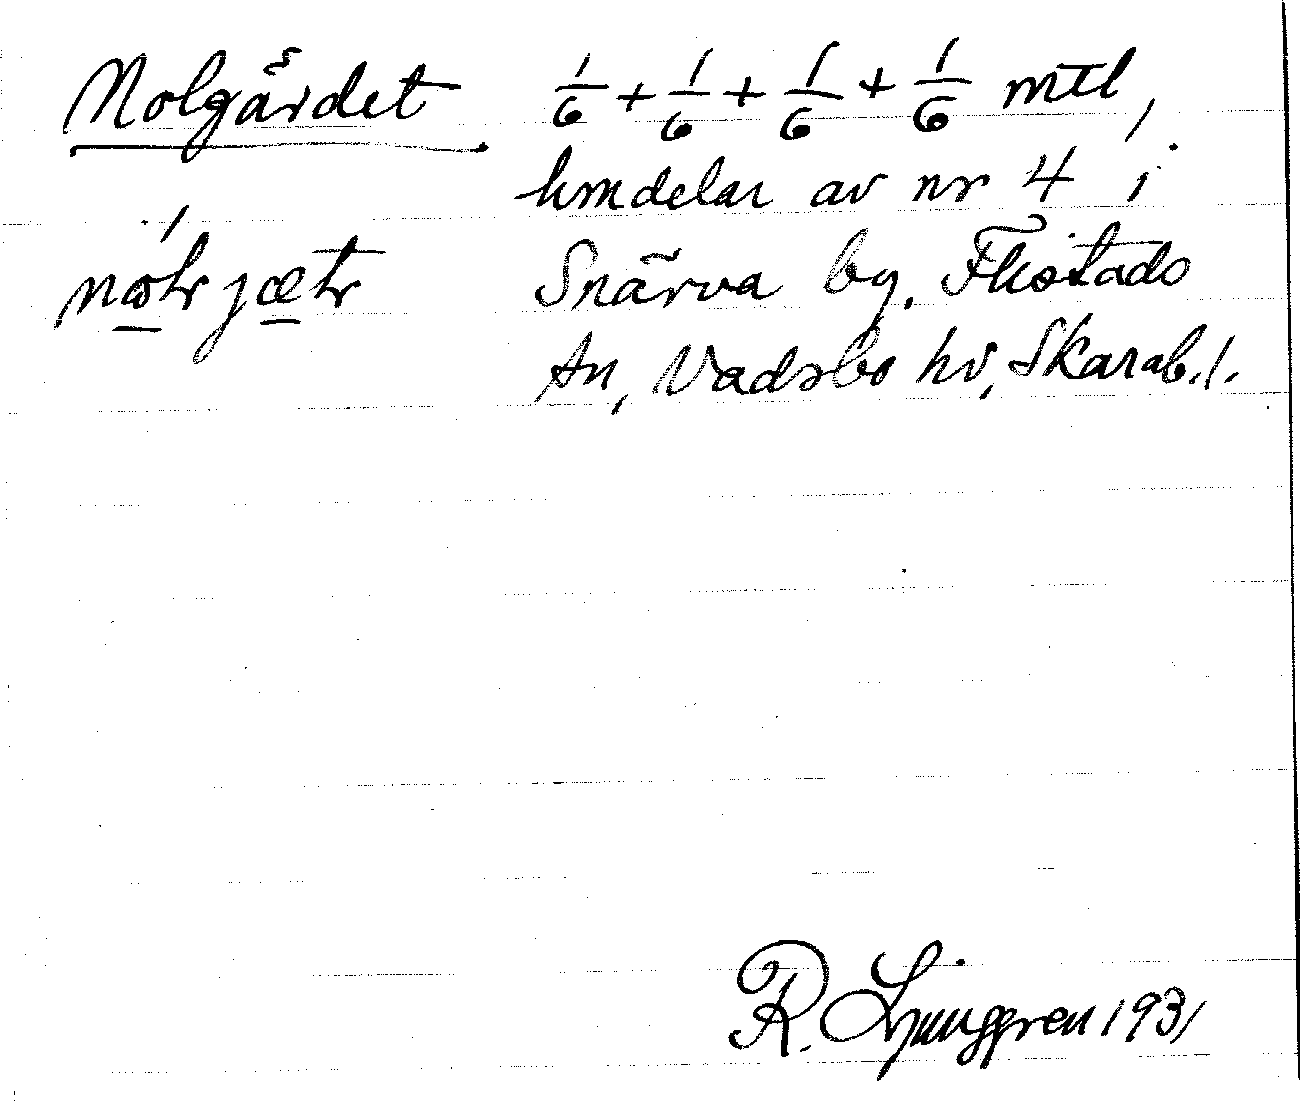 Nolgärdet 1/6 + 1/6 + 1/6 + 1/6 mtl,
hmdelar av nr 4 i
Snärva by. Flistads
sn, Vadsbo hd, Skarab. l.
R. Ljunggren 1931